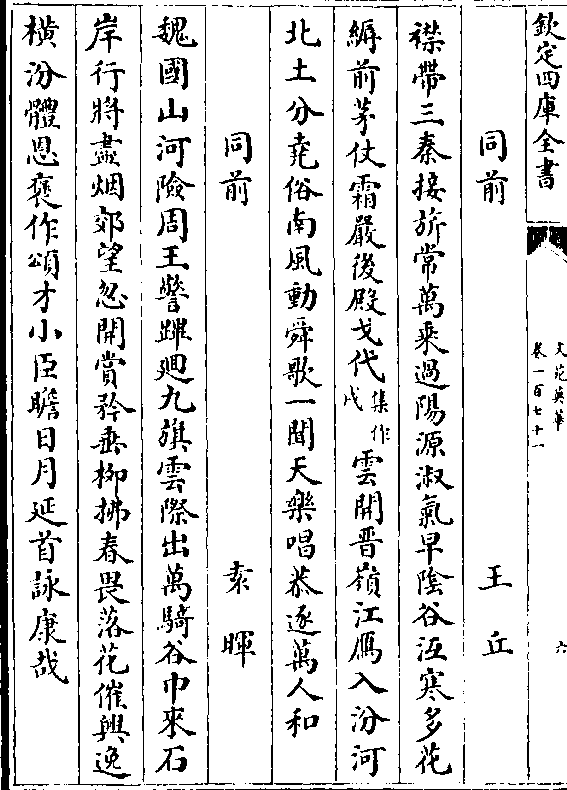 欽定四庫全書
文苑英華
卷一百七十一
六
同前 王丘
襟帶三秦接旂常萬乘過陽源淑氣早陰谷沍寒多花
縟前茅仗霜嚴後殿戈代集作戍雲開晋嶺江鴈入汾河
北土分堯俗南風動舜歌一聞天樂唱恭逐萬人和
同前 袁暉
魏國山河險周王警蹕廻九旗雲際出萬騎谷中來石
岸行將盡烟郊望忽開賞矜垂柳拂春畏落花催興逸
橫汾體恩褒作頌才小臣瞻日月延首詠康哉